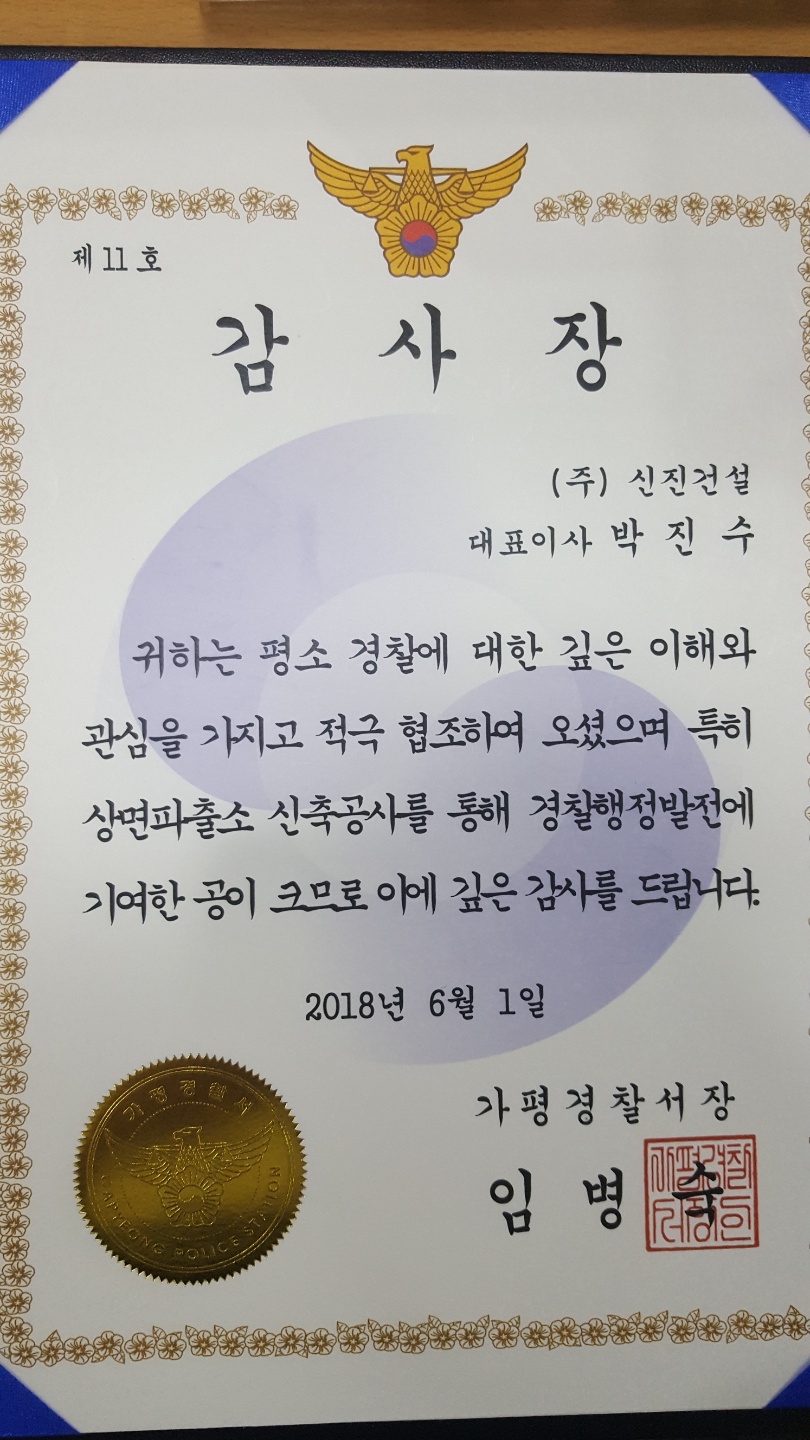 제 11 호
감 사 장
(주) 신진건설
대표이사 박 진 수
귀하는 평소 경찰에 대한 깊은 이해와
관심을 가지고 적극 협조하여 오셨으며 특히
상면파출소 신축공사를 통해 경찰행정발전에
기여한 공이 크므로 이에 깊은 감사를 드립니다.
2018년 6월 1일
가평경찰서장
임 병 숙
가평경찰서
GAPYEONG POLICE STATION